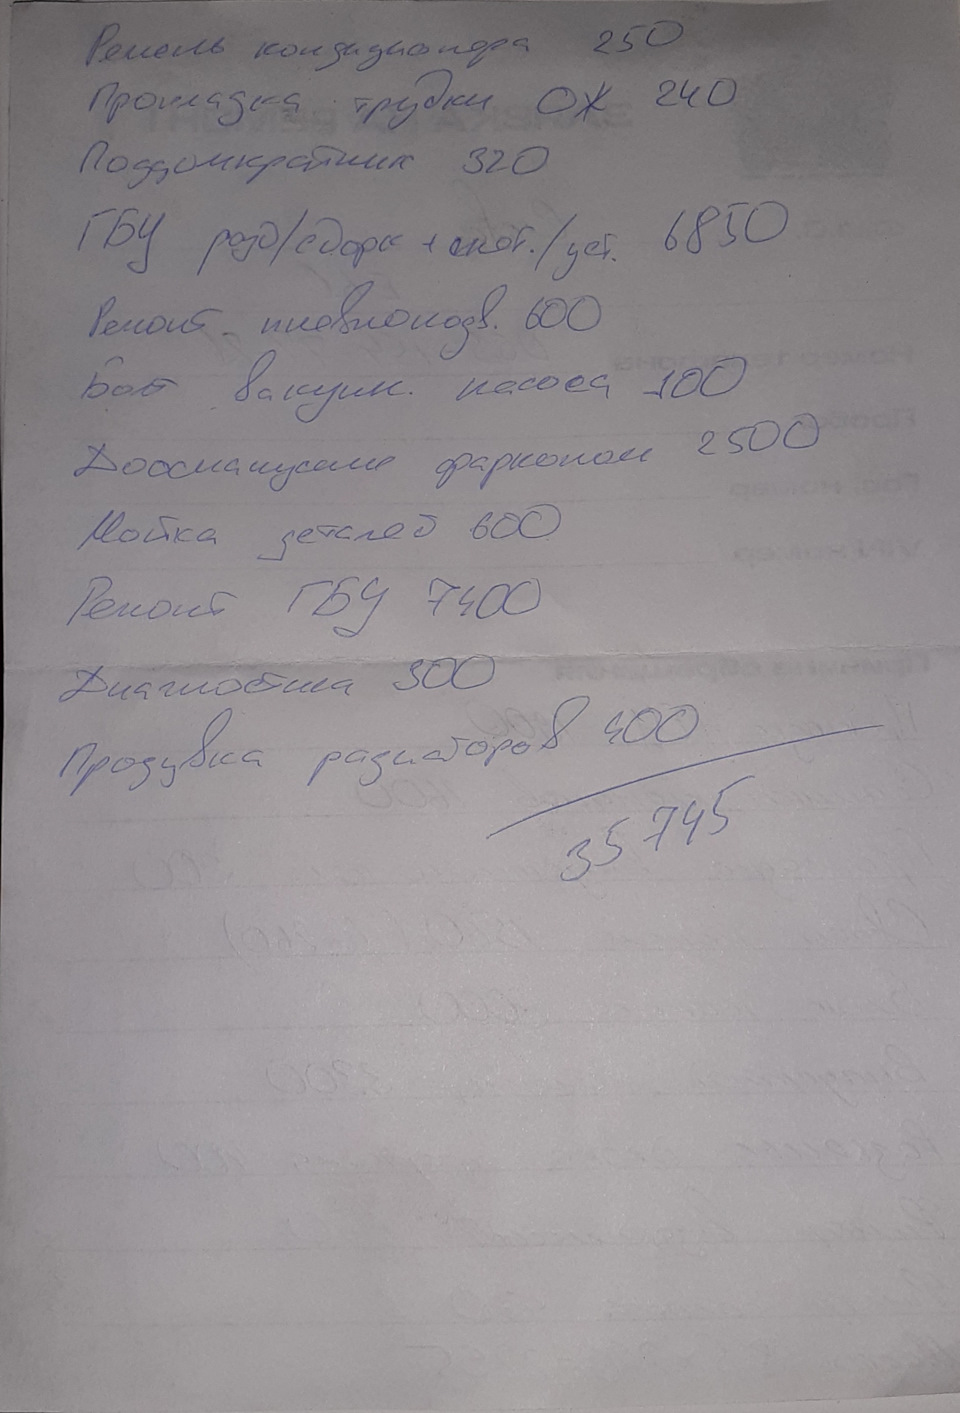 Ремень кондиционера 250
Прокладка трубки ОЖ 240
Поддомкратник 320
ГБУ разб/сборк + снят./уст. 6850
Ремонт пневмоподв. 600
Болт вакуум. насоса 100
Дооснащение фаркопом 2500
Мойка деталей 600
Ремонт ГБУ 7400
Диагностика 300
Продувка радиаторов 400
35745